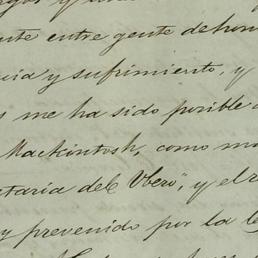 ente entre gente de hon
cia y sufrimiento, y
s me ha sido posible
Mackintosh, como ma
etaria del Ubero", y el r
y prevenido por la le